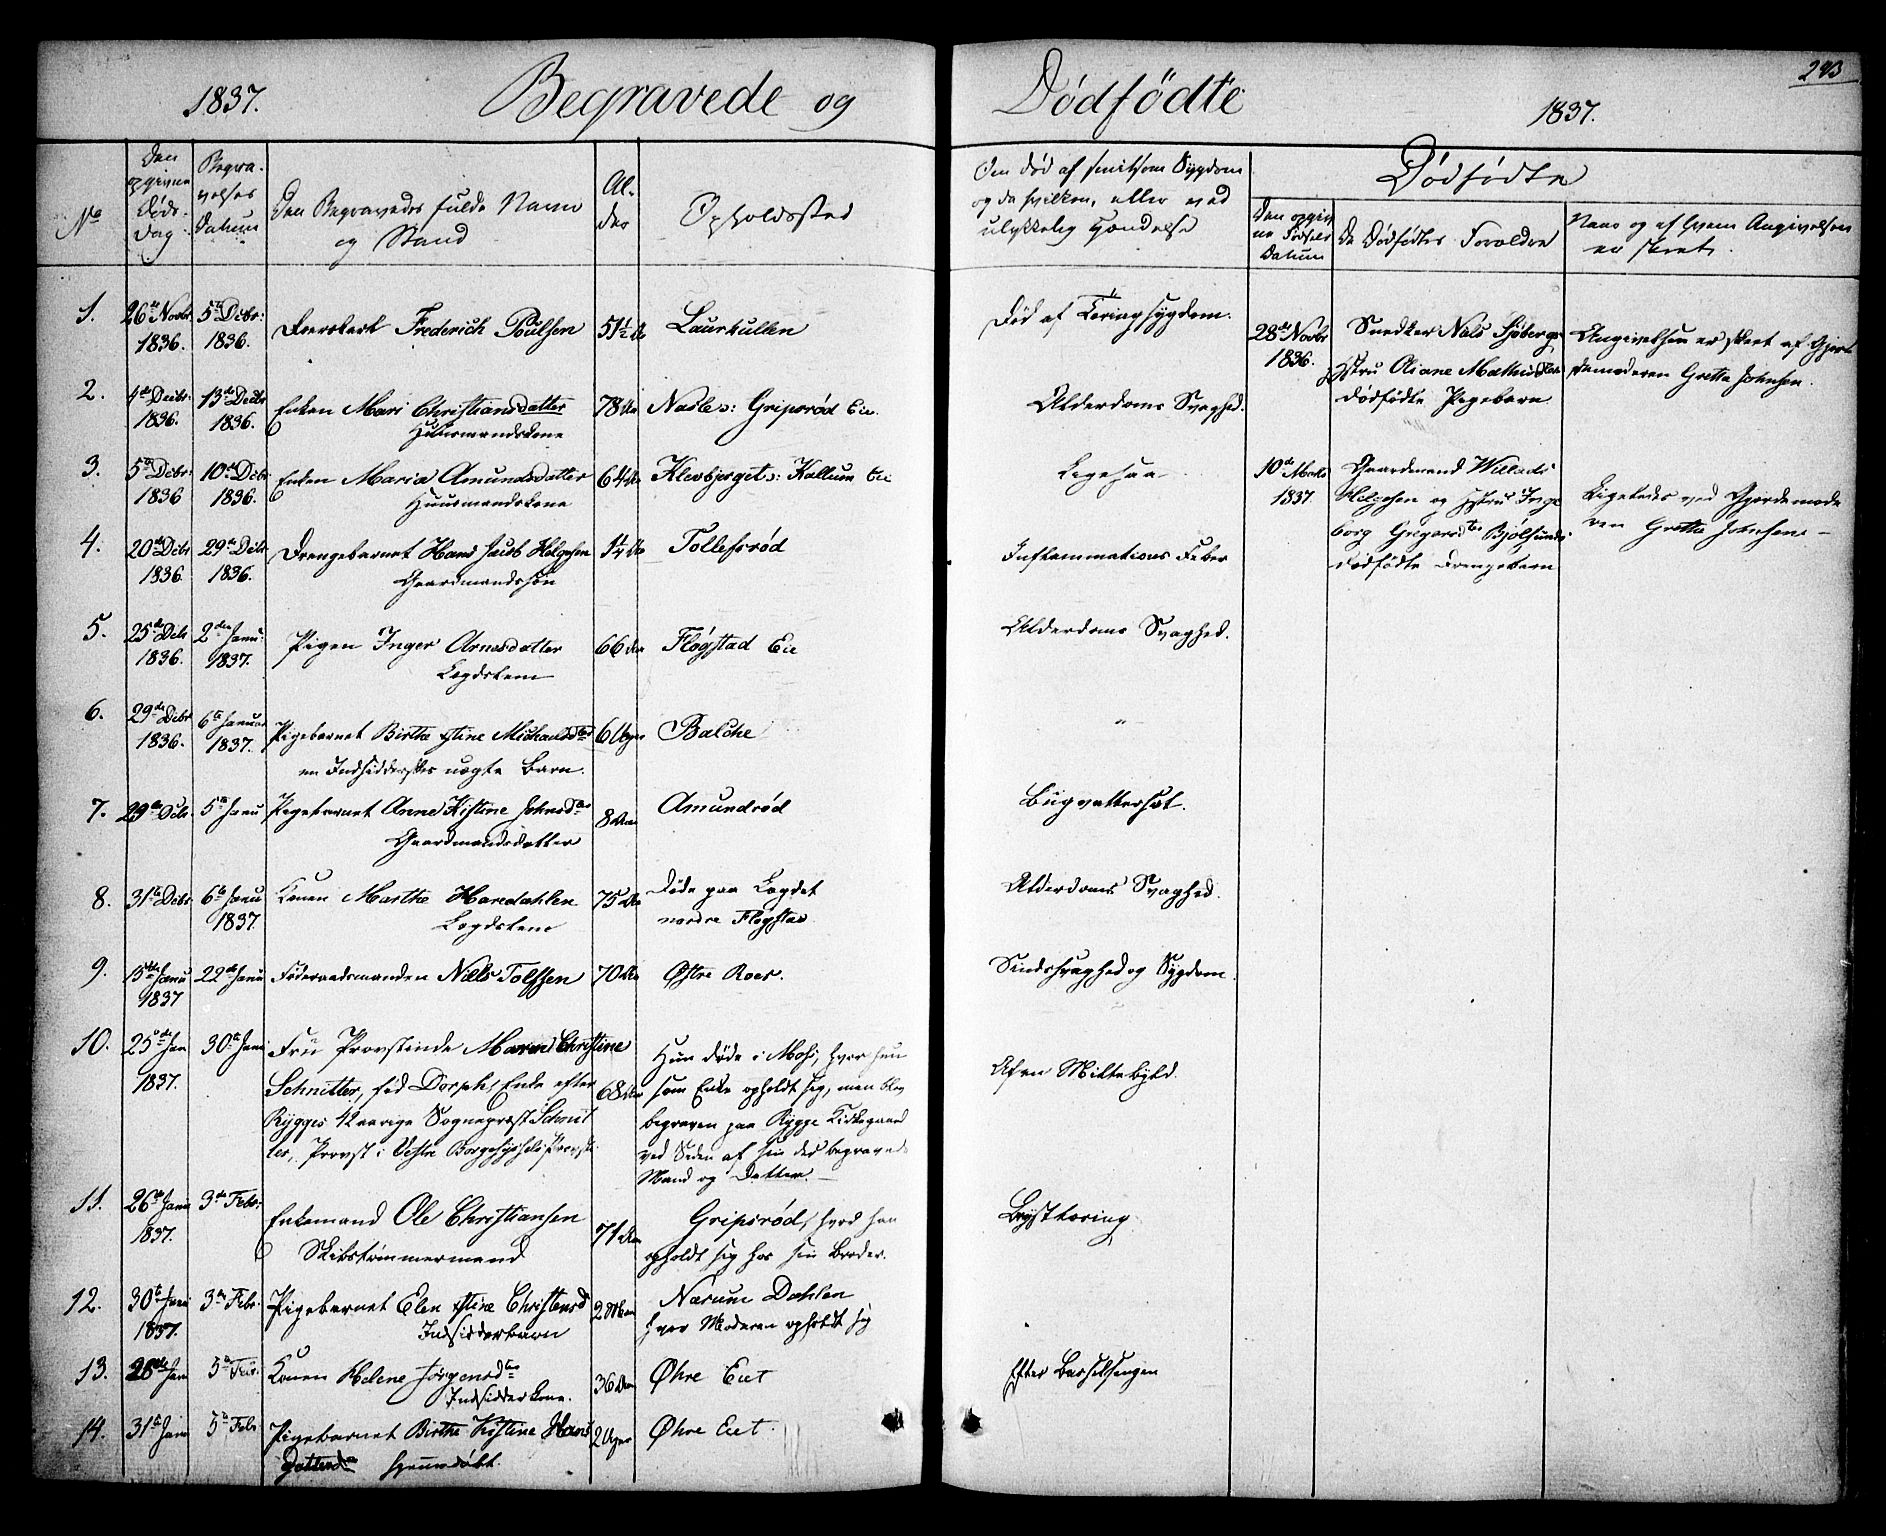 1837. Begravede og Dødfødte 1837.
293
No
Den opgivne Døds-Dag
Begravelses Datum
Den Begravedes fulde Navn og Stand
Alder
Opholdssted
Om død af smitsom Sygdom og da hvilken, eller ved ulykkelig Hændelse
Dødfødte
Den opgivne Fødsels Datum
De Dødfødtes Forældre
Naar og af hvem Angivelsen er skeet
1. 26de Novbr 1836. 5te Decbr: 1836. Frederich Poulsen 51½ Aar Laurkullen
Død af Tæringssygdom.
2. 4de Decbr: 1836. 13de Decbr 1836. Enken Mari Christiansdatter 78 Aar Nasle s: Gripsrød Eie.
Huusmandskone
Alderdoms Svaghed.
3. 5te Decbr: 1836 10de Decbr 1836. Enken Maria Amundsdatter 64 Aar Klevbjerget s: Kallum Eie
Huusmandskone
Ligesaa
4. 20de Decbr 1836. 29de Decbr 1836. Drengebarnet Hans Jacob Helgesen 1¼ Aar Tollefsrød
Gaardmandssøn
Inflammations Feber
5. 25de Decbr 1836. 2den Janu: 1837. Pigen Inger Arnesdatter 66 Aar Fløgstad Eie
Lægdslem
Alderdoms Svaghed.
6. 29de Decbr 1836. 6te Januar 1837. Pigebarnet Birthe Stine Michaelsdtr 6 Uger Balche
en Indsidderskes uægte Barn.
"
7. 29de Decbr 5te Janu Pigebarnet Anne Kistine Johnsdtr 8 Aar Amundrød
Gaardmandsdatter
Bugvattersot.
8. 31te Decbr 6te Janu 1837. Konen Marthe Haredahlen 75 Aar Døde paa Lægdet
Lægdslem nordre Fløgstad
Alderdoms Svaghed.
9. 15de Janu 1837 22de Janu Føderaadsmanden Niels Tolfsen 70 Aar Østre Roer.
Sindssvaghed og Sygdom.
10. 25de Jan 1837. 30te Janu Fru Provstinde Maren Christine
Schnitler, fød Dorph, Enke efter 68 Aar
Rygges 42 aarige Sognepræst Schnit
ler, Provst i Vestre Borgesyssels Provsti
Hun døde i Moss, hvor hun
som Enke opholdt sig, men blev
begraven paa Rygge Kirkegaard
ved Siden af sin der begravede
Mand og Datter. —
Af en Miltebyld.
11. 26de Janu 1837. 3de Febr: Enkemand Ole Christiansen 71 Aar Gripsrød, hvor han
Skibstømmermand opholdt sig hos sin Broder.
Brysttæring
12. 30te Janu 1837. 3die Febr. Pigebarnet Elen Stine Christensd Nærum Dahlen
Indsidderbarn hvor Moderen opholdt sig
13. 28de Jan 5te Febr. Konen Helene Jørgensdtr 36 Aar Øhre Eiet
Indsidderkone.
Efter Barselsengen
14. 31te Jan 5te Febr Pigebarnet Birthe Kistine Hans 2 Uger Øhre Eiet.
hjemmedøbt.
28de Novbr 1836. Snedker Niels Sjøbergs
Hustru Oliane Mathisdatter
dødfødte Pigebarn
Angivelsen er skeet af Gjor
demoderen Grethe Johnsen.
10de Marts 1837 Gaardmand Willads
Helgesen og Hustru Inge
borg Gregersdtr Bjølsunds
dødfødte Drengebarn
Ligeledes ved Gjordemode
ren Grethe Johnsen —